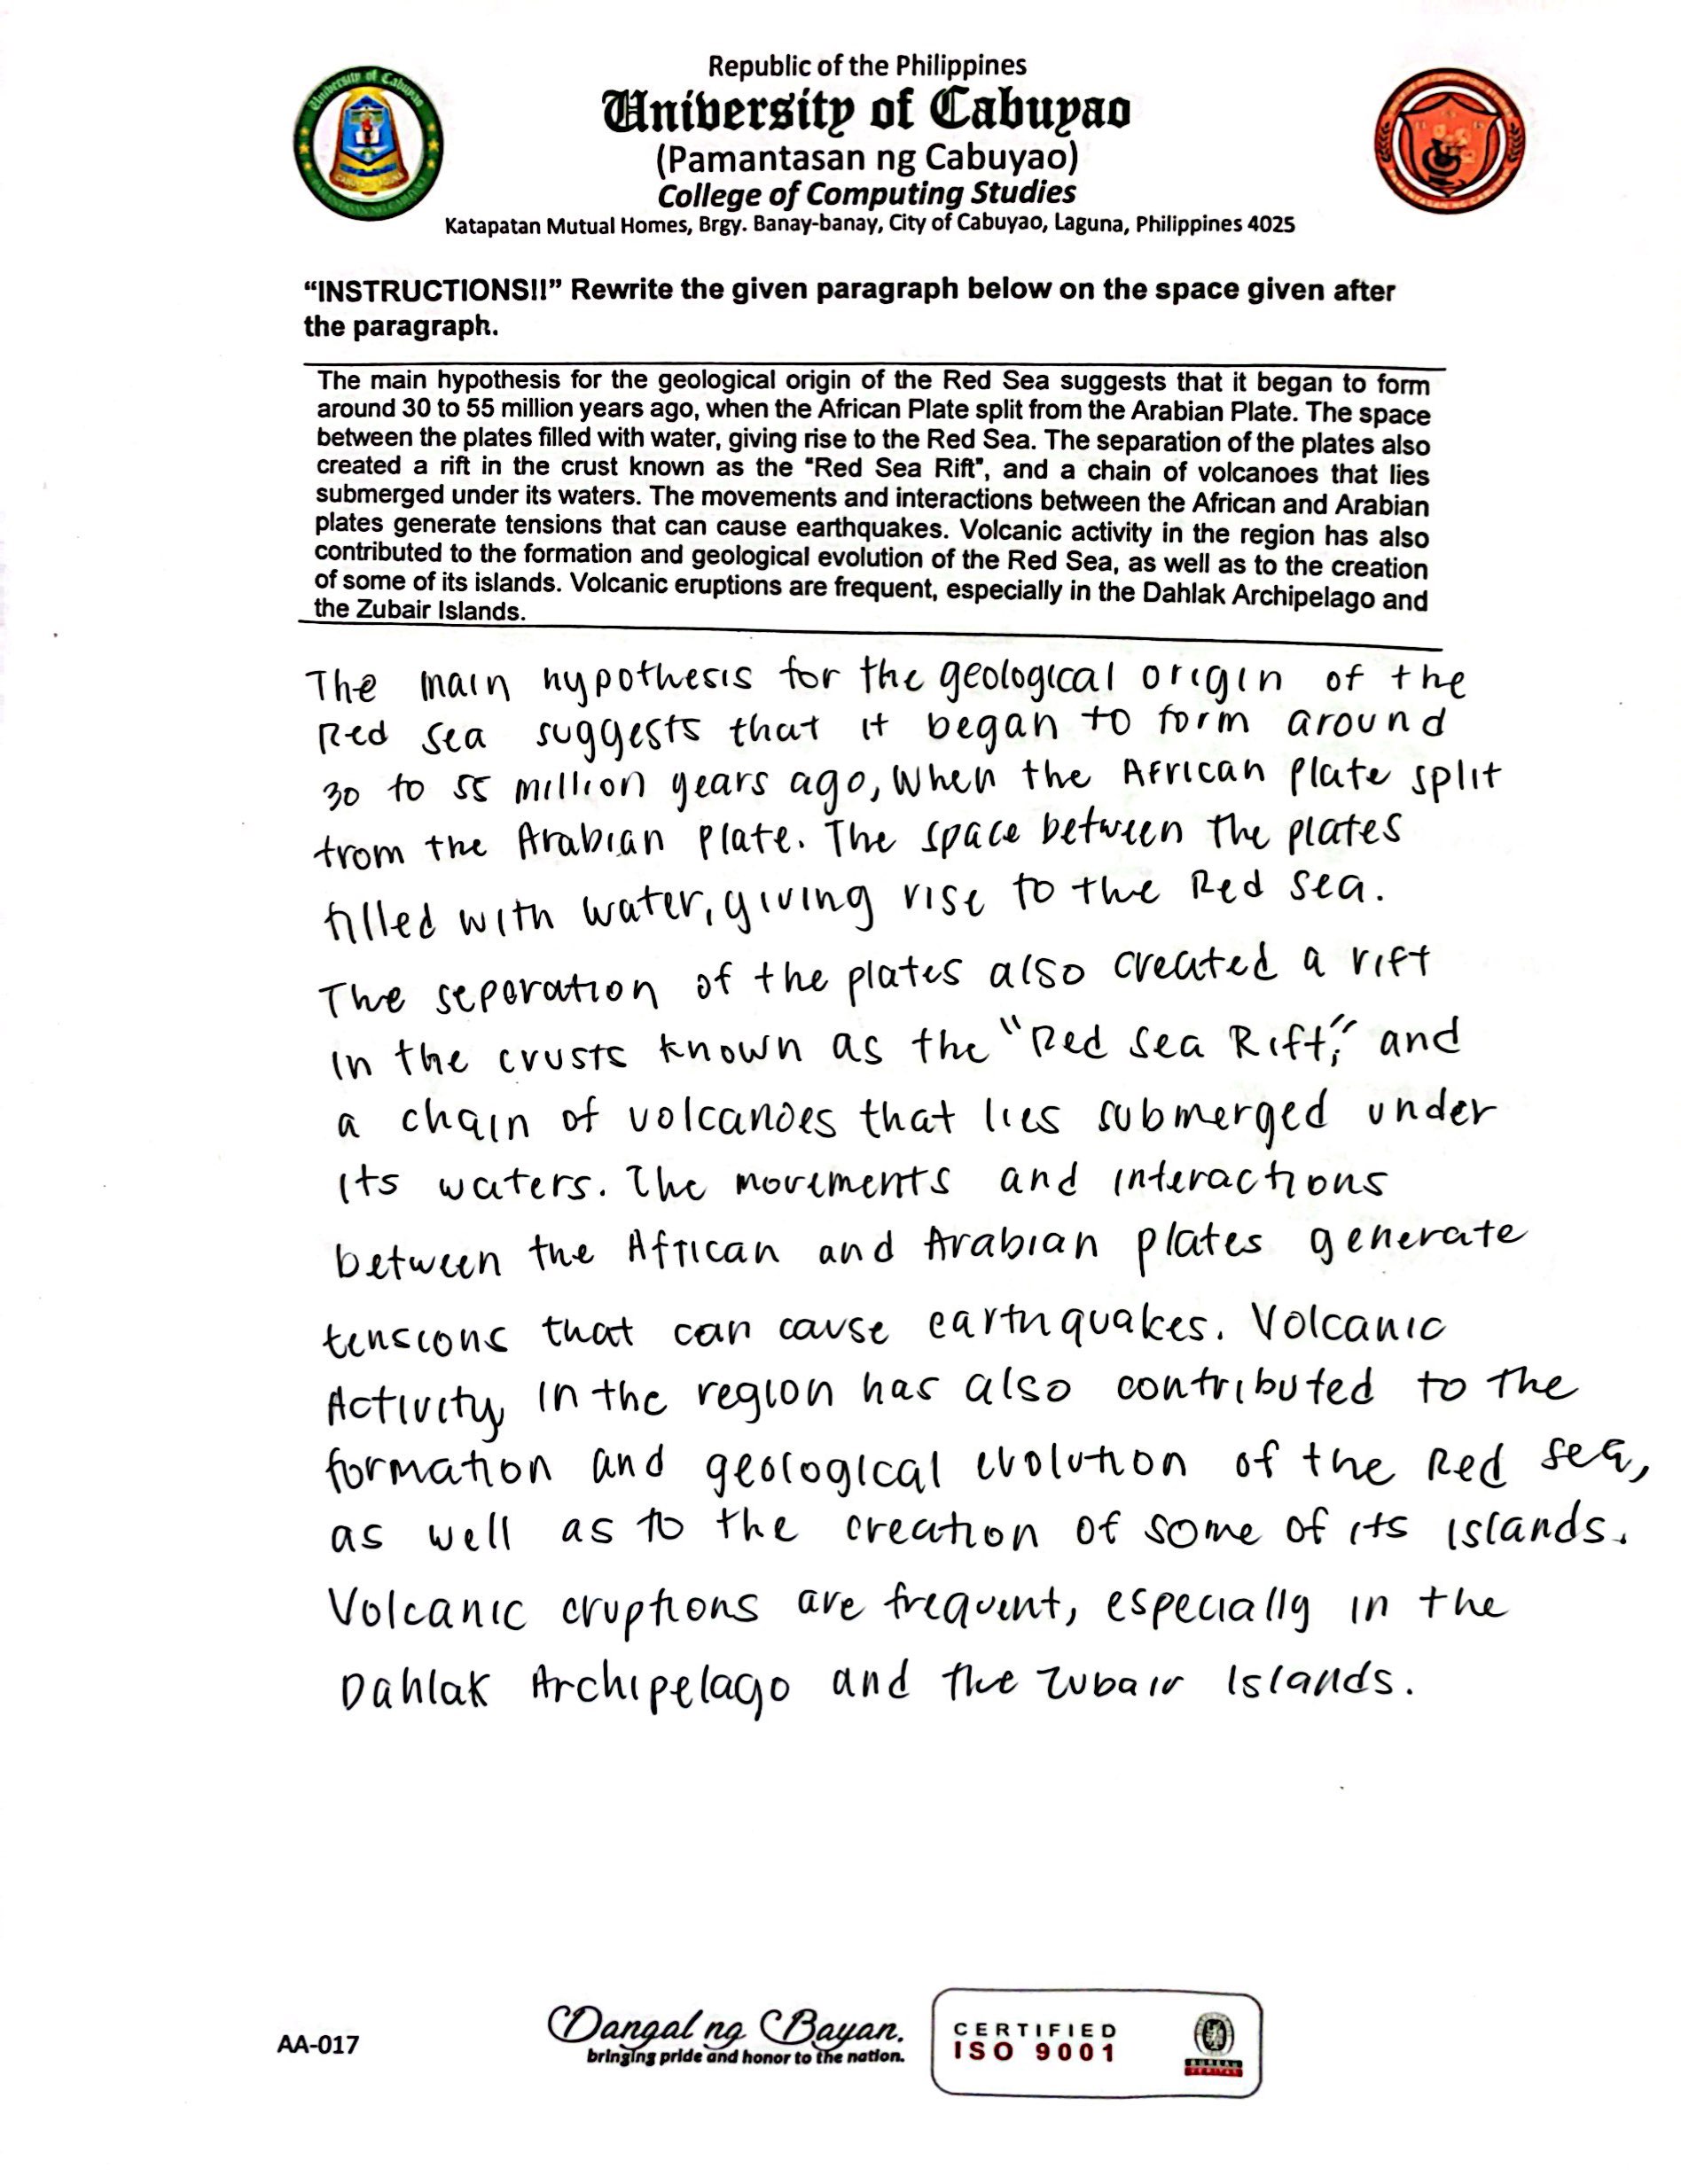 Republic of the Philippines
University of Cabuyao
(Pamantasan ng Cabuyao)
College of Computing Studies
Katapatan Mutual Homes, Brgy. Banay-banay, City of Cabuyao, Laguna, Philippines 4025
University of Cabuyao
PAMANTASAN NG CABUYAO
“INSTRUCTIONS!!” Rewrite the given paragraph below on the space given after
the paragraph.
The main hypothesis for the geological origin of the Red Sea suggests that it began to form
around 30 to 55 million years ago, when the African Plate split from the Arabian Plate. The space
between the plates filled with water, giving rise to the Red Sea. The separation of the plates also
created a rift in the crust known as the "Red Sea Rift", and a chain of volcanoes that lies
submerged under its waters. The movements and interactions between the African and Arabian
plates generate tensions that can cause earthquakes. Volcanic activity in the region has also
contributed to the formation and geological evolution of the Red Sea, as well as to the creation
of some of its islands. Volcanic eruptions are frequent, especially in the Dahlak Archipelago and
the Zubair Islands.
The main hypothesis for the geological origin of the
Red Sea suggests that it began to form around
30 to 55 million years ago, when the African Plate split
from the Arabian Plate. The space between the plates
filled with water, giving rise to the Red Sea.
The separation of the plates also created a rift
in the crusts known as the "Red Sea Rift," and
a chain of volcanoes that lies submerged under
its waters. The movements and interactions
between the African and Arabian plates generate
tensions that can cause earthquakes. Volcanic
Activity in the region has also contributed to the
formation and geological evolution of the Red Sea,
as well as to the creation of some of its islands.
Volcanic eruptions are frequent, especially in the
Dahlak Archipelago and the Zubair Islands.
AA-017
Dangal ng Bayan.
bringing pride and honor to the nation.
CERTIFIED
ISO 9001
BUREAU
VERITAS